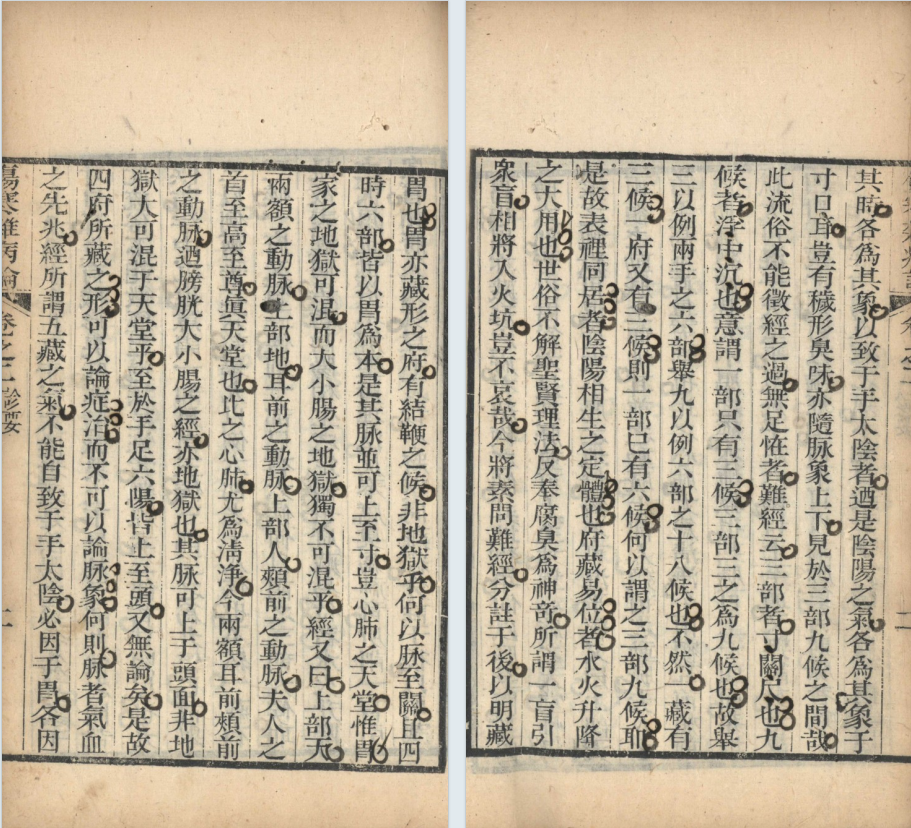 胃也胃亦藏形之府有結鞕之候非地獄乎何以脉至關且四
時六部皆以胃爲本是其脉並可上至寸豈心肺之天堂惟胃
家之地獄可混而大小腸之地獄獨不可混乎經又曰上部天
兩額之動脉上部地耳前之動脉上部人頰前之動脉夫人之
首至高至尊眞天堂也比之心肺尤爲淸淨今兩額耳前頰前
之動脉迺膀胱大小腸之經亦地獄也其脉可上于頭面非地
獄大可混于天堂乎至於手足六陽皆上至頭又無論矣是故
四府所藏之形可以論症治而不可以論脉象何則脉者氣血
之先兆經所謂五藏之氣不能自致于手太陰必因于胃各因
傷寒雜病論 卷之二診要 二
其時各爲其象以致于手太陰者迺是陰陽之氣各爲其象于
寸口耳豈有穢形臭味亦隨脉象上下見於三部九候之間哉
此流俗不能徵經之過無足恠者難經云三部者寸關尺也九
候者浮中沉也意謂一部只有三候三部三之爲九候也故舉
三以例兩手之六部舉九以例六部之十八候也不然藏有
三候府又有三候則一部已有六候何以謂之三部九候耶
是故表裡同居者陰陽相生之定體也府藏易位者水火升降
之大用也世俗不解聖賢理法反奉腐臭爲神奇所謂一盲引
衆盲相將入火坑豈不哀哉今將素問難經分註于後以明藏